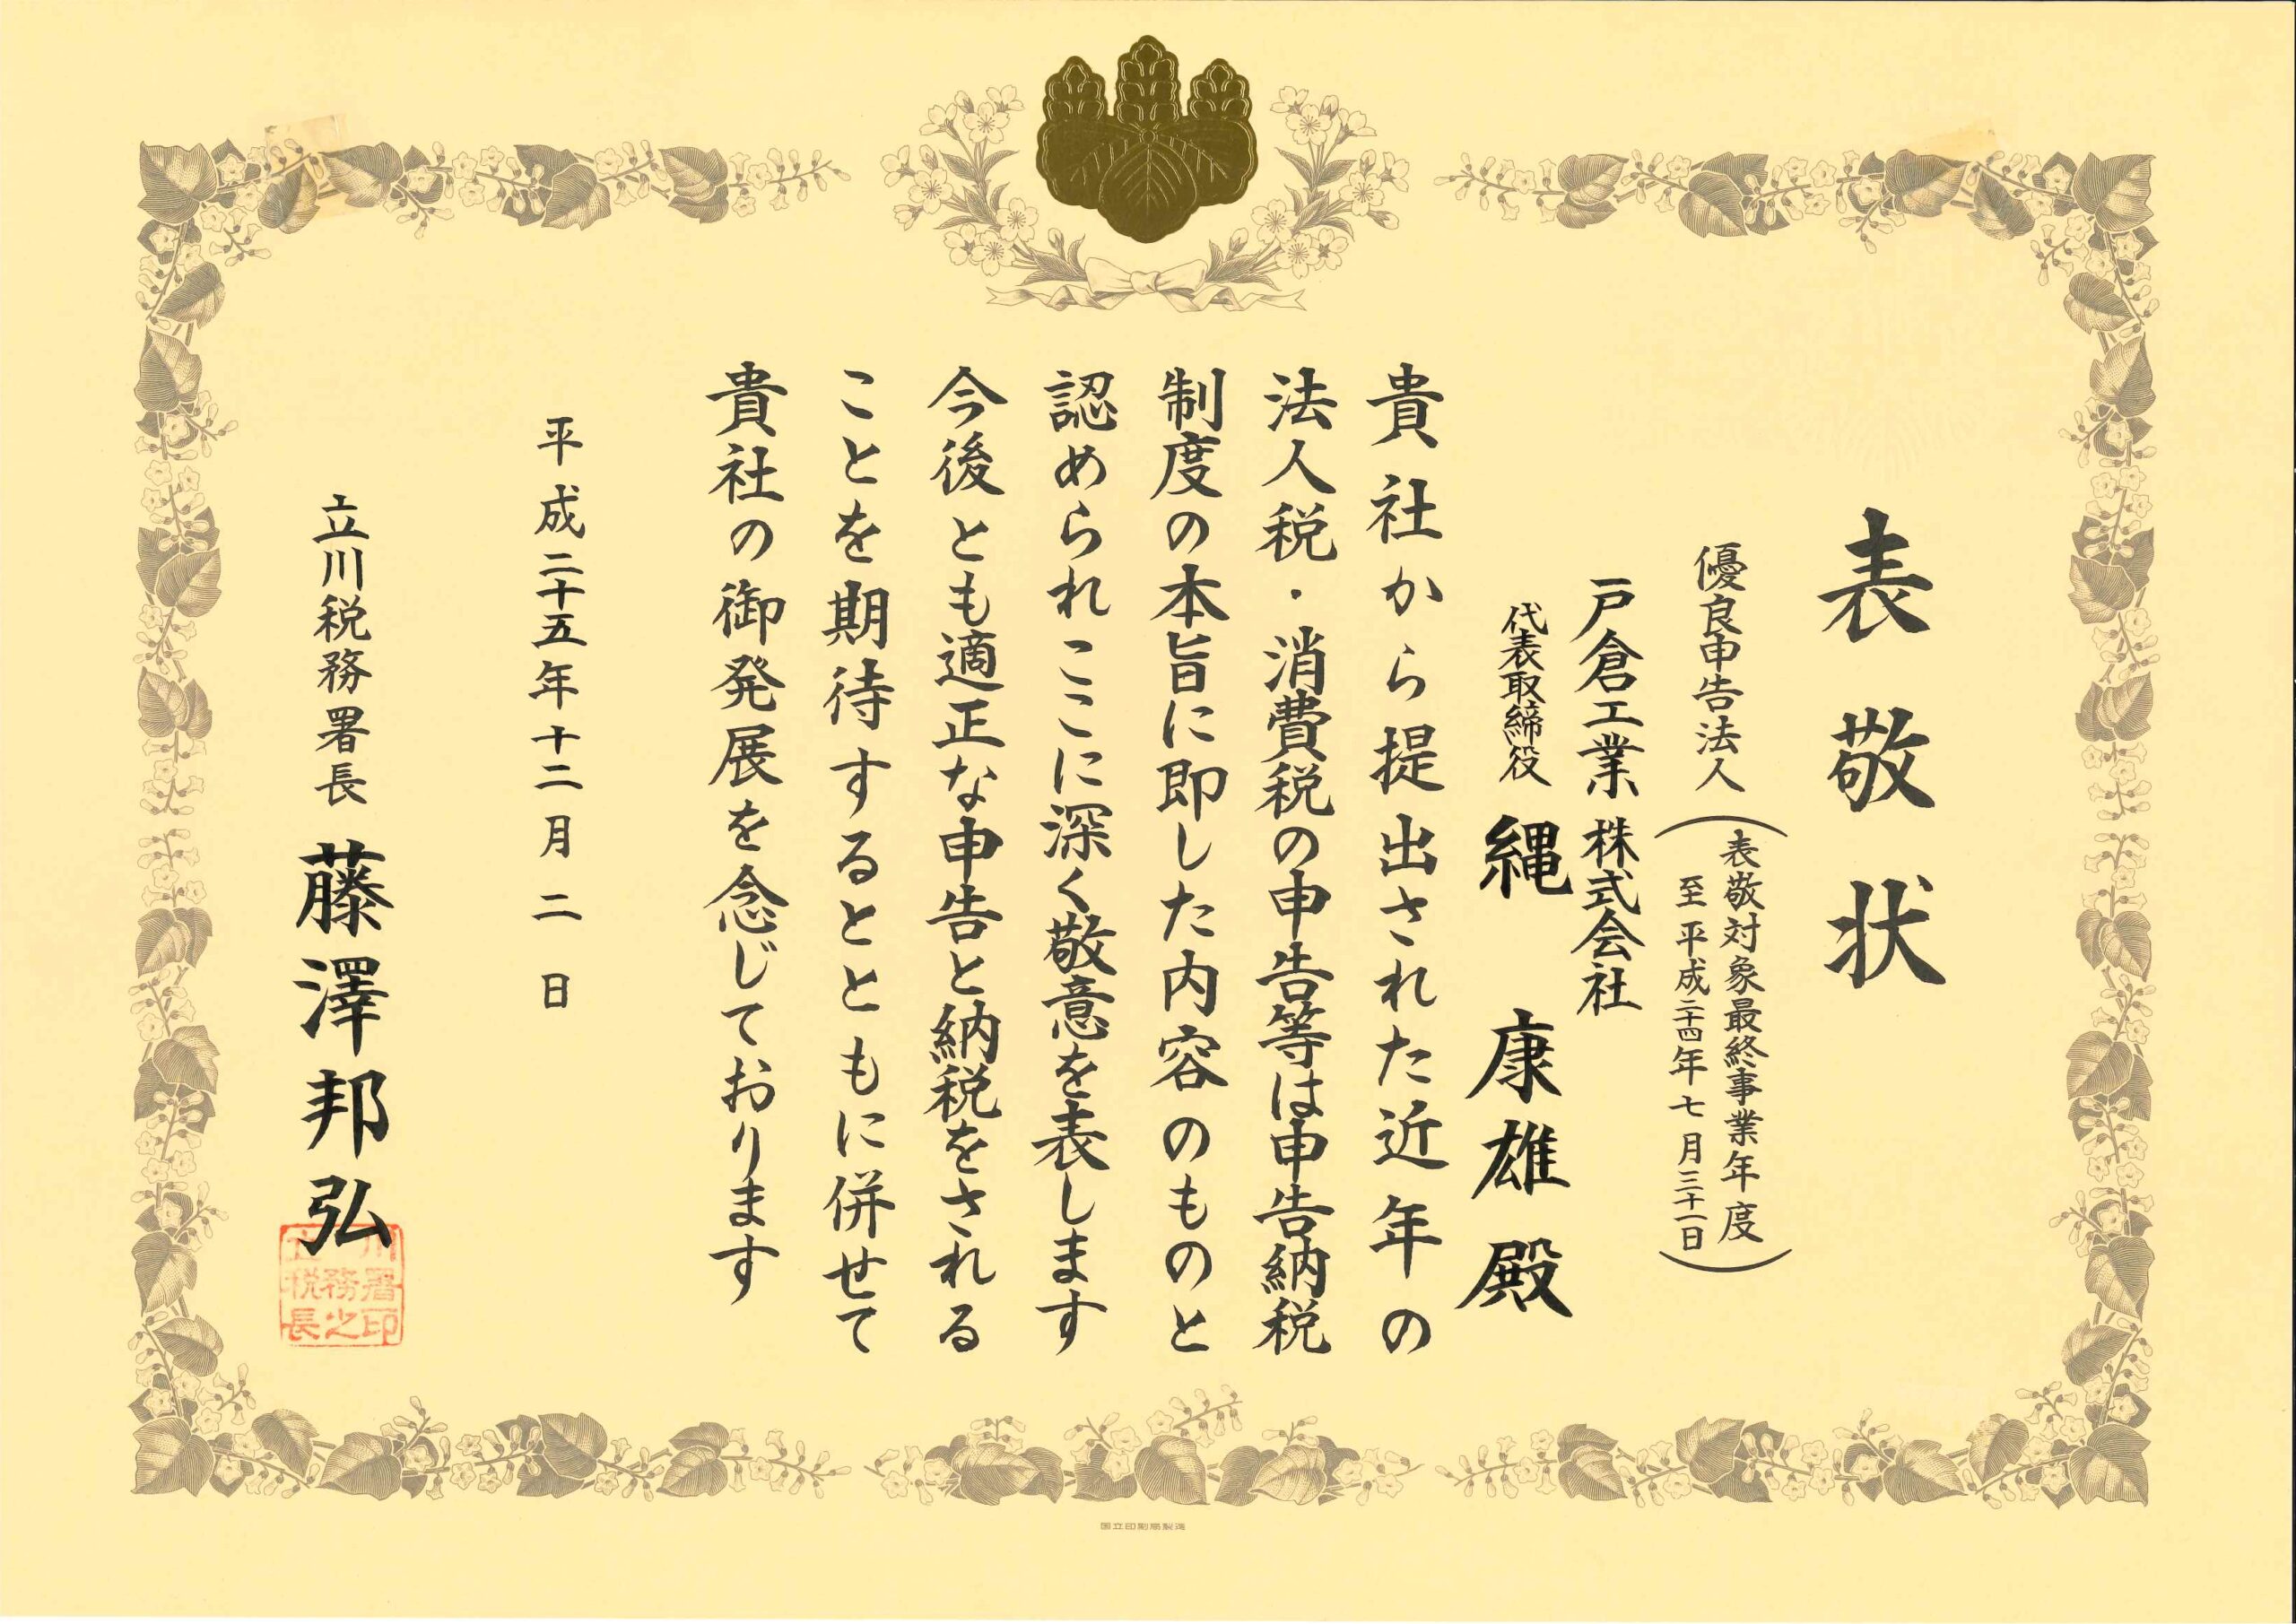 表敬状
優良申告法人
(表敬対象最終事業年度
至 平成二十四年七月三十一日)
戸倉工業株式会社
代表取締役 縄 康雄 殿
貴社から提出された近年の
法人税・消費税の申告等は申告納税
制度の本旨に即した内容のものと
認められここに深く敬意を表します
今後とも適正な申告と納税をされる
ことを期待するとともに併せて
貴社の御発展を念じております
平成二十五年十二月二日
立川税務署長 藤澤邦弘
立川
税務署
長之印
国立印刷局製造